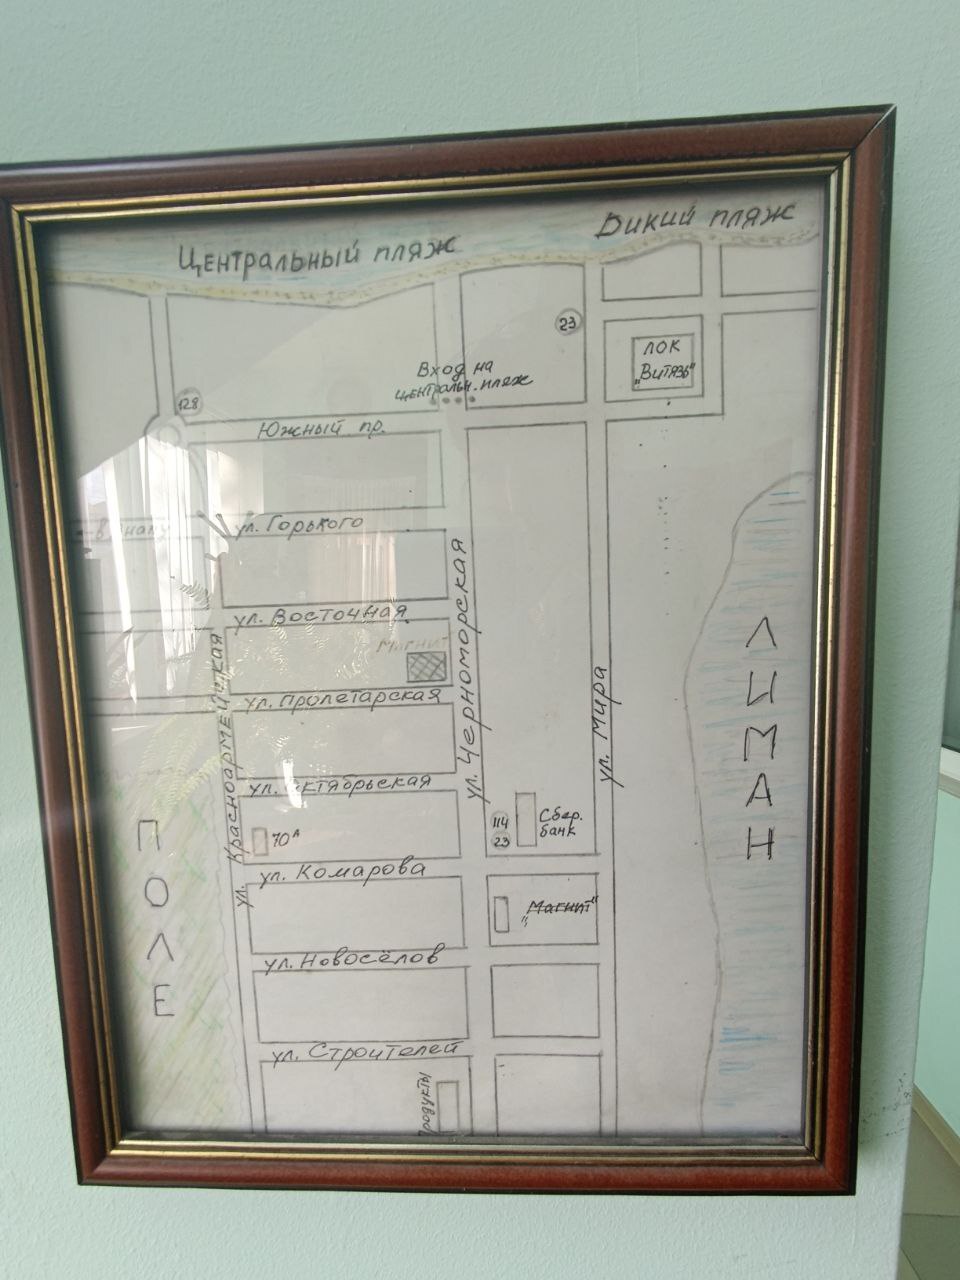 Дикий пляж
Центральный пляж
23
ЛОК
"Витязь"
Вход на
центральн. пляж
128
Южный пр.
ул. Горького
ул. Восточная
Магнит
ул. Пролетарская
ул. Октябрьская
70А
ул. Комарова
ул. Новосёлов
ул. Строителей
Продукты
ул. Красноармейская
ул. Черноморская
ул. Мира
114
23
Сбер.
банк
"Магнит"
ПОЛЕ
ЛИМАН